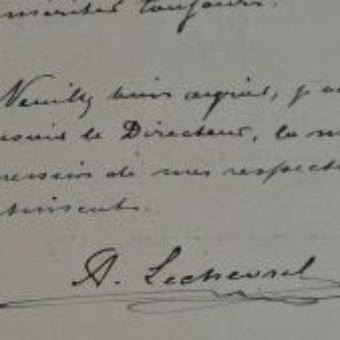 mérites toujours.
Veuillez bien agréer, j
le Directeur, la
de mes respect
A. Lechevrel